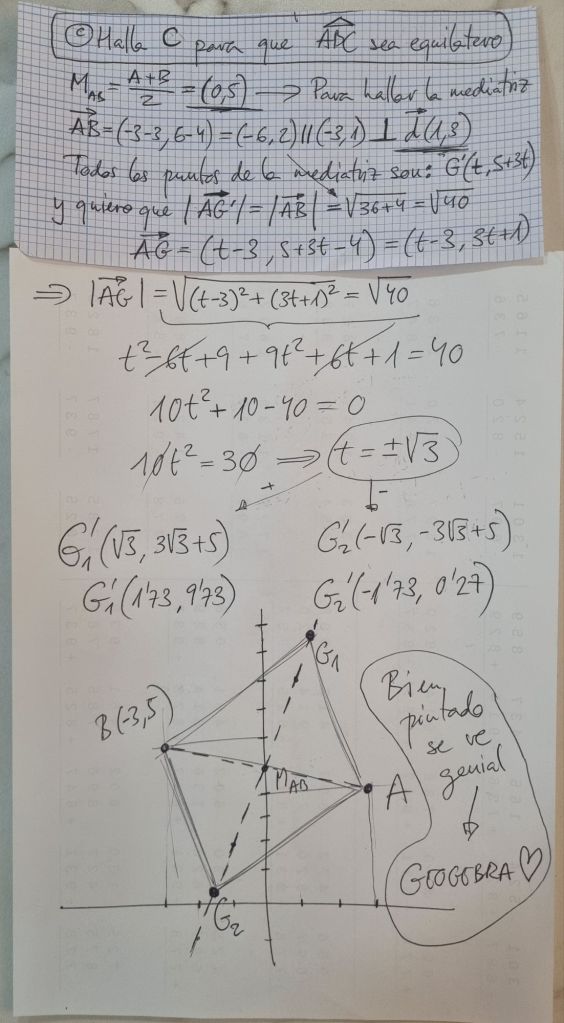 ⓒ Halla C para que ABC sea equilatero
M_AB = A+B/2 = (0,5) → Para hallar la mediatriz
AB = (-3-3, 6-4) = (-6, 2) || (-3,1) ⊥ d(1,3)
Todos los puntos de la mediatriz son: G'(t, 5+3t)
y quiero que |AG'| = |AB| = √36+4 = √40
AG = (t-3, 5+3t-4) = (t-3, 3t+1)
⇒ |AG| = √(t-3)²+(3t+1)² = √40
t²-6t+9+9t²+6t+1=40
10t²+10-40=0
10t²=30 ⇒ t=±√3
+ -
G₁'(√3, 3√3+5) G₂'(-√3, -3√3+5)
G₁'(1'73, 9'73) G₂'(-1'73, 0'27)
G₁
B(-3,5)
M_AB
A
G₂
Bien
pintado
se ve
genial
↓
GEOGEBRA♡